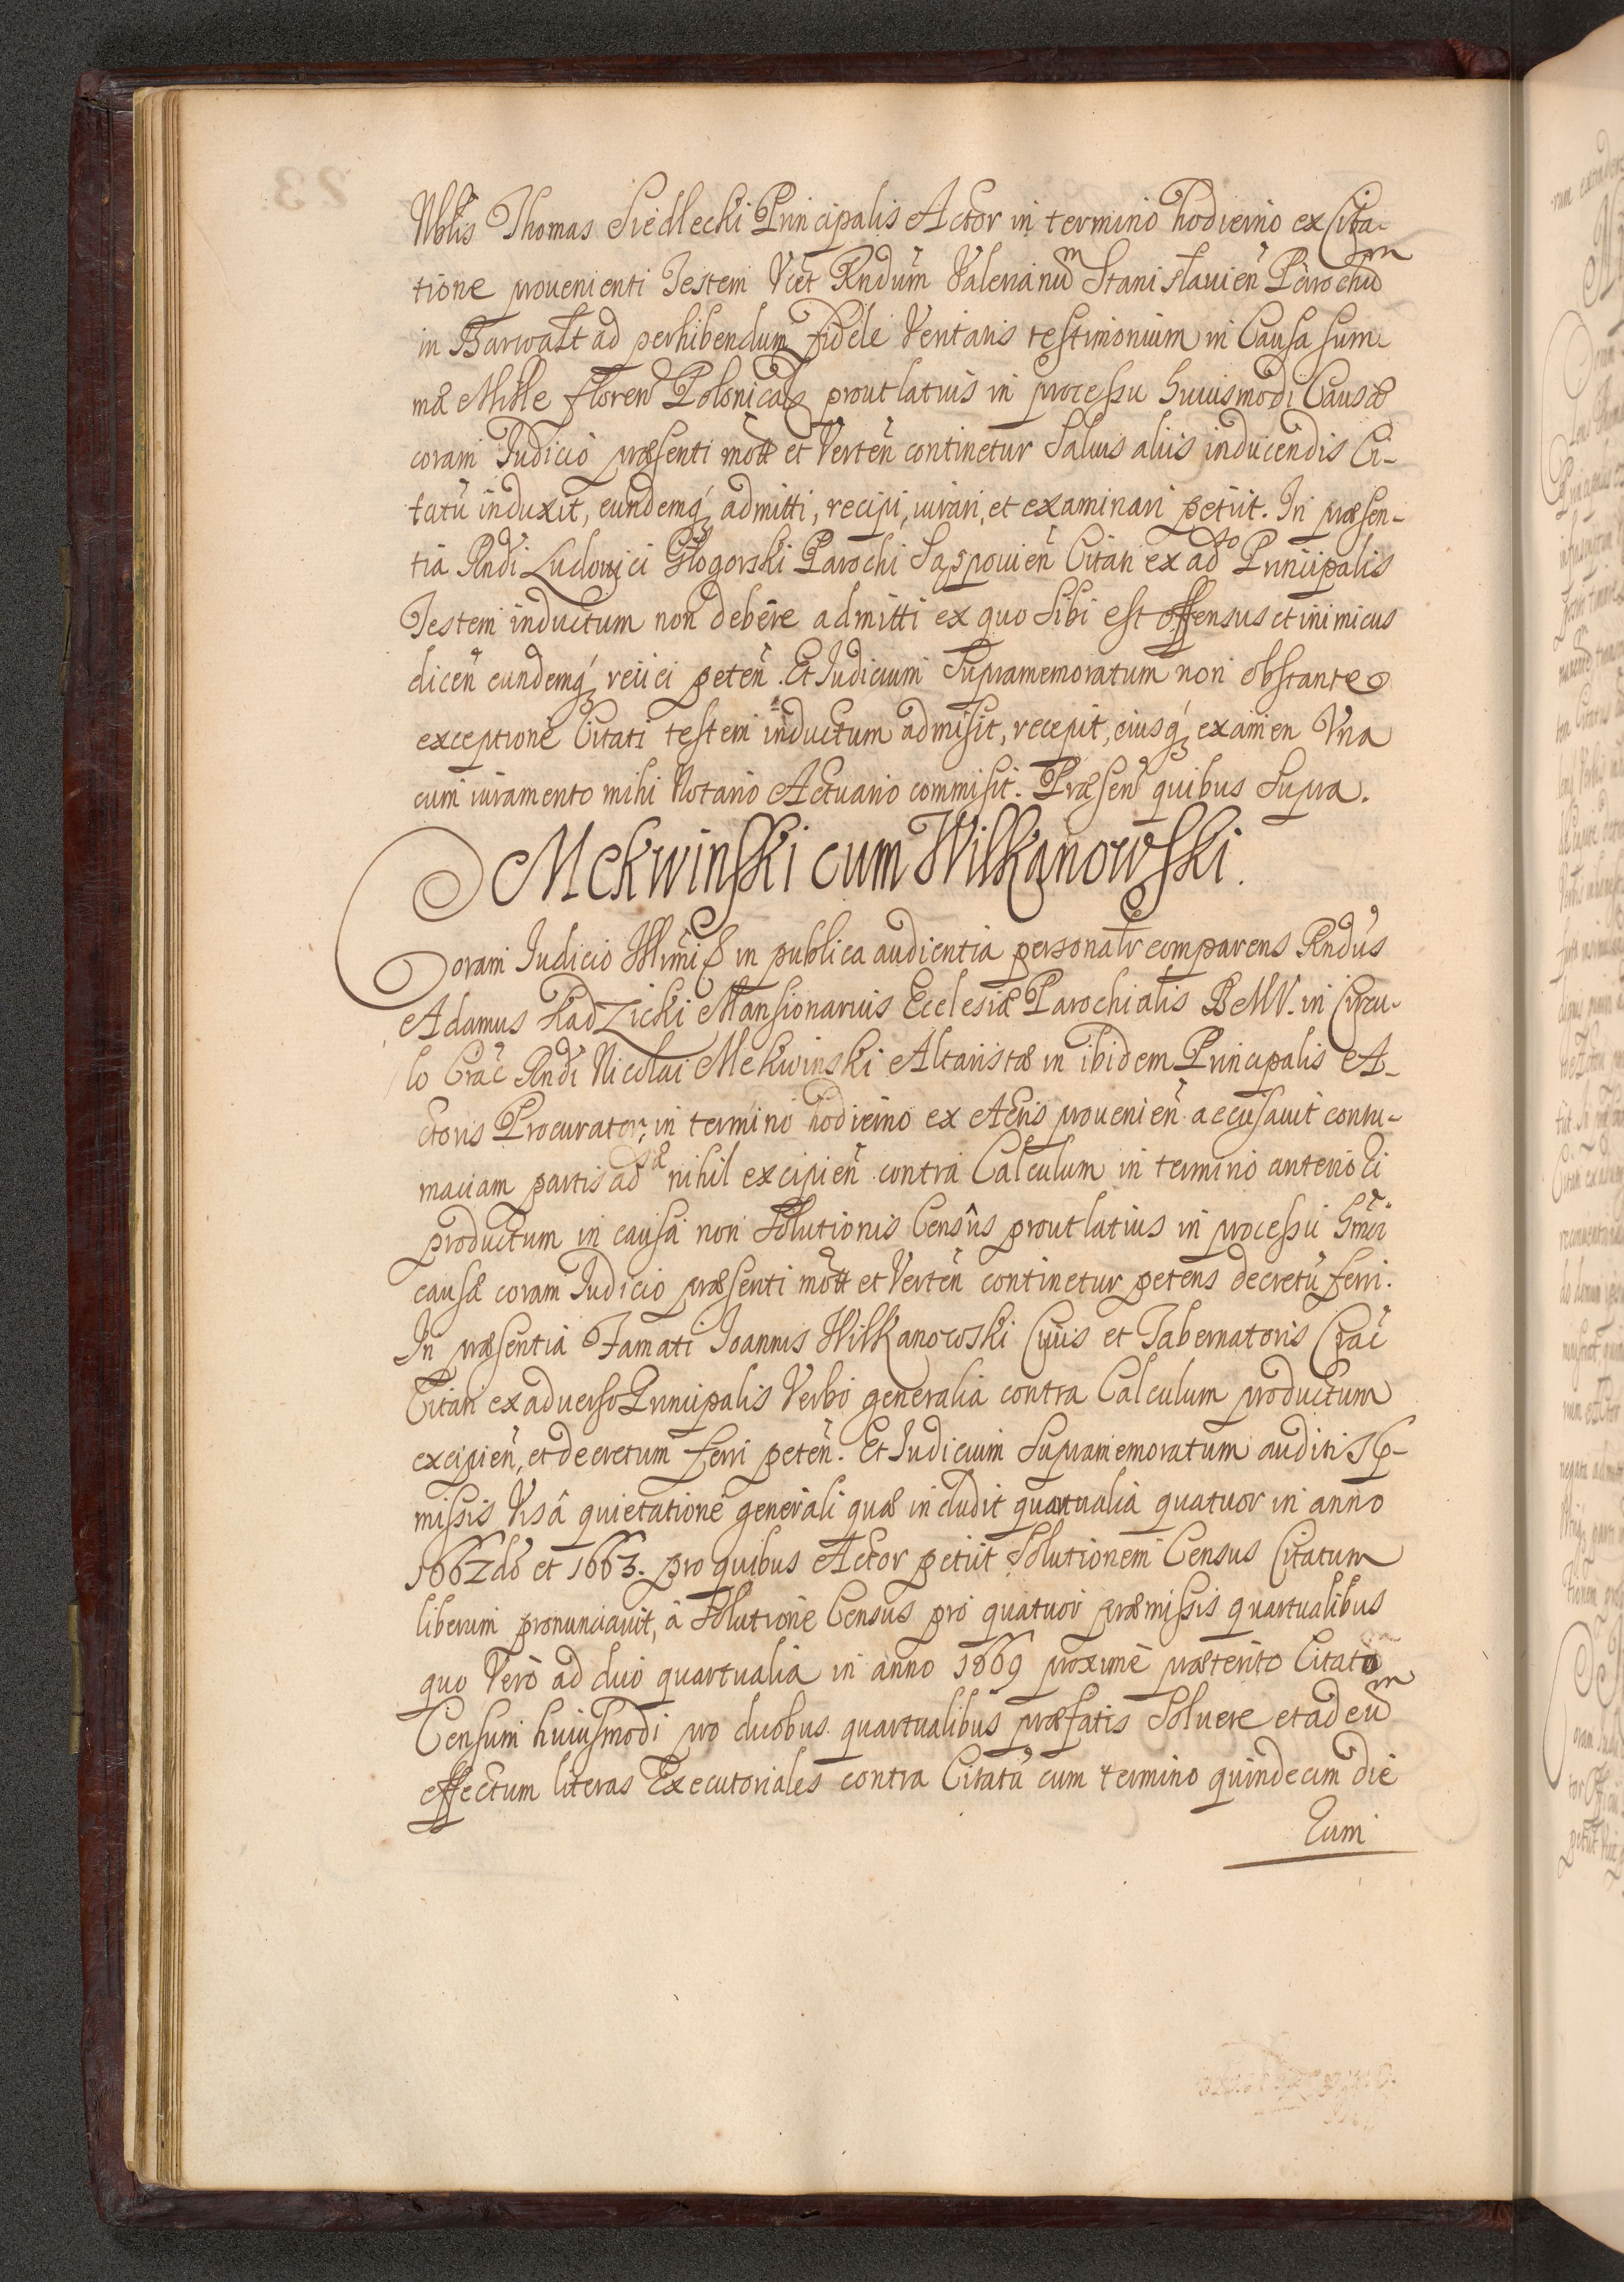 Nblis Thomas Siedlecki Principalis Actor in termino hodierno ex Cita-
tione prouenienti Testem Vict Rndum Valerianum Stanislauien Parochum
in Barwałt ad perhibendum fidele Veritatis testimonium in Causa sum-
mæ Mille floren Polonical prout latius in processu huiusmodi Causæ
coram Iudicio præsenti mott et Verten continetur Saluis aliis inducendis Ci-
tatũ induxit, eundemq́ admitti, recipi, iurari, et examinari petiit. In præsen-
tia Rndi Ludouici Głogorski Parochi Sąspouien Citati ex adso Principalis
Testem inductum non debere admitti ex quo Sibi est offensus et inimicus
dicen eundemq́ reiici peten. Et Iudicium Supramemoratum non obstante
exceptione Citati testem inductum admisit, recepit, eiusq́ examen Vna
cum iuramento mihi Notario Actuario commisit. Præsen quibus Supra.
Mekwinski cum Wilkanowski.
Coram Iudicio Illrmi in publica audientia personalr comparens Rndus
Adamus Radzicki Mansionarius Ecclesiæ Parochialis BMV. in Circu-
lo Crac Rndi Nicolai Mekwinski Altaristæ in ibidem Principalis A-
ctoris Procurator, in termino hodierno ex Actis prouenien accusauit contu-
maciam partis adsæ nihil excipien contra Calculum in termino anteriori
productum in causa non Solutionis Censûs prout latius in processu hmoi
causæ coram Iudicio præsenti mott et Verten continetur petens decretũ ferri.
In præsentia Famati Ioannis Wilkanowski Ciuis et Tabernatoris Crac
Citati ex aduerso Principalis Verbo generalia contra Calculum productum
excipien, et decretum ferri peten. Et Iudicium Supramemoratum auditis p-
missis Visâ quietatione generali quæ includit quartualia quatuor in anno
1662do et 1663. pro quibus Actor petiit Solutionem Census Citatum
liberum pronunciauit, à Solutione Census pro quatuor præmissis quartualibus
quo Verò ad duo quartualia in anno 1669 proximè præterito Citato
Censum huiusmodi pro duobus quartualibus præfatis Soluere et ad eum
effectum literas Executoriales contra Citatũ cum termino quindecim die
rum